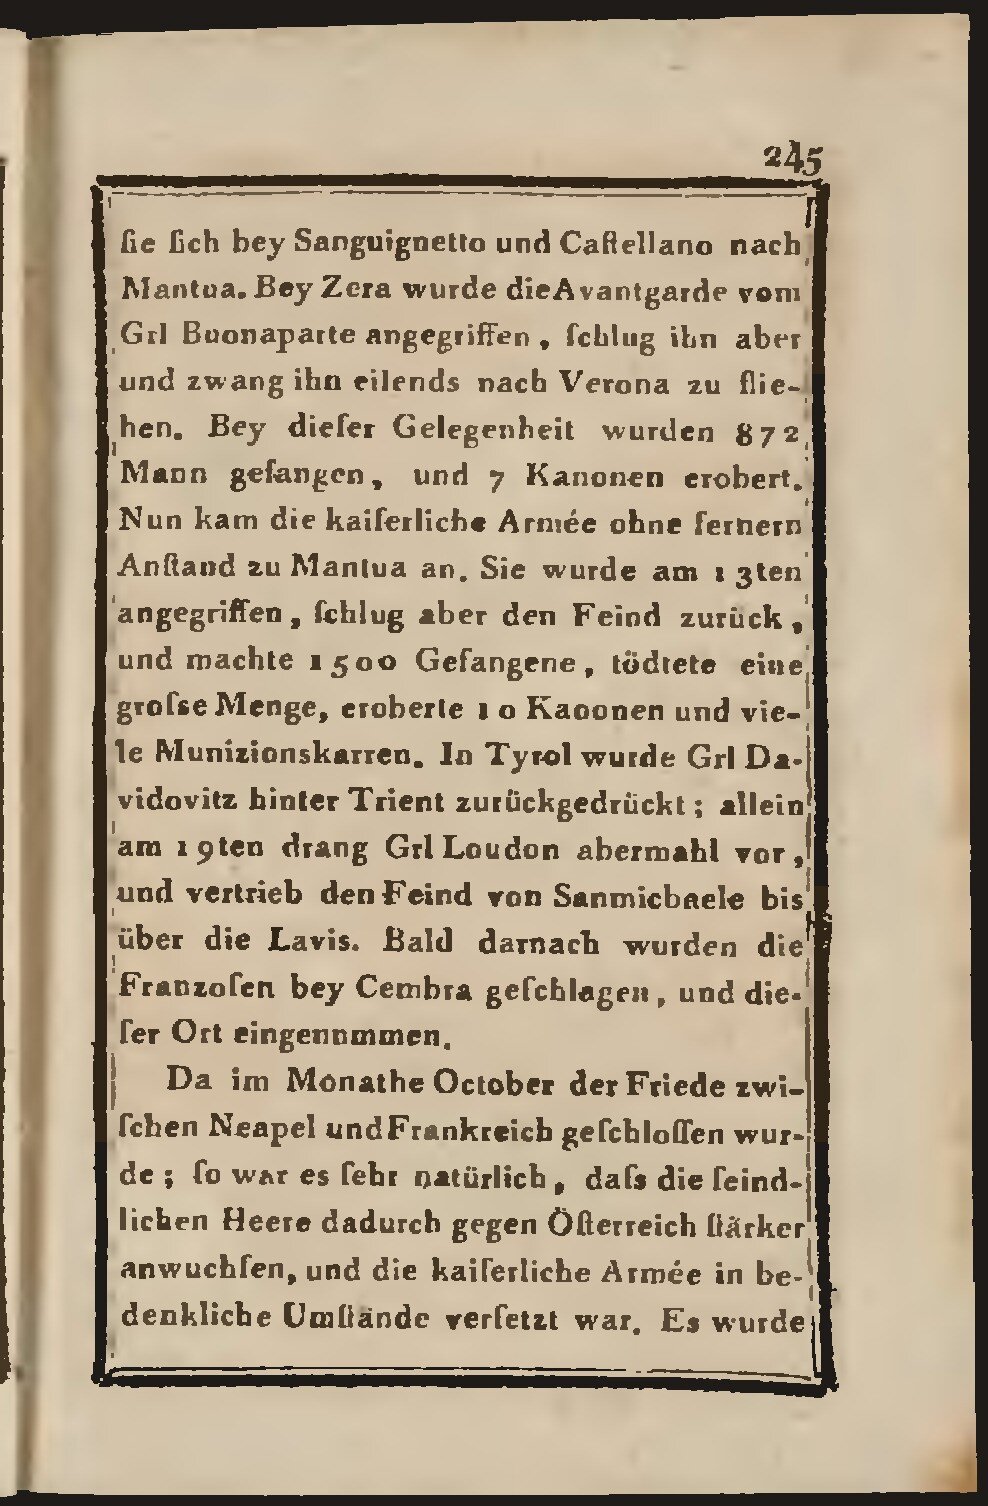 245
ſie ſich bey Sanguignetto und Caſtellano nach
Mantua. Bey Zera wurde die Avantgarde vom
Grl Buonaparte angegriffen, ſchlug ihn aber
und zwang ihn eilends nach Verona zu flie-
hen. Bey dieſer Gelegenheit wurden 872
Mann gefangen, und 7 Kanonen erobert.
Nun kam die kaiſerliche Armée ohne fernern
Anſtand zu Mantua an. Sie wurde am 13ten
angegriffen, ſchlug aber den Feind zurück,
und machte 1500 Gefangene, tödtete eine
groſse Menge, eroberte 10 Kanonen und vie-
le Munizionskarren. In Tyrol wurde Grl Da-
vidovitz hinter Trient zurückgedrückt; allein
am 19ten drang Grl Loudon abermahl vor,
und vertrieb den Feind von Sanmichaele bis
über die Lavis. Bald darnach wurden die
Franzoſen bey Cembra geſchlagen, und die-
ſer Ort eingenommen.
Da im Monathe October der Friede zwi-
ſchen Neapel und Frankreich geſchloſſen wur-
de; ſo war es ſehr natürlich, daſs die feind-
lichen Heere dadurch gegen Öſterreich ſtärker
anwuchſen, und die kaiſerliche Armée in be-
denkliche Umſtände verſetzt war. Es wurde